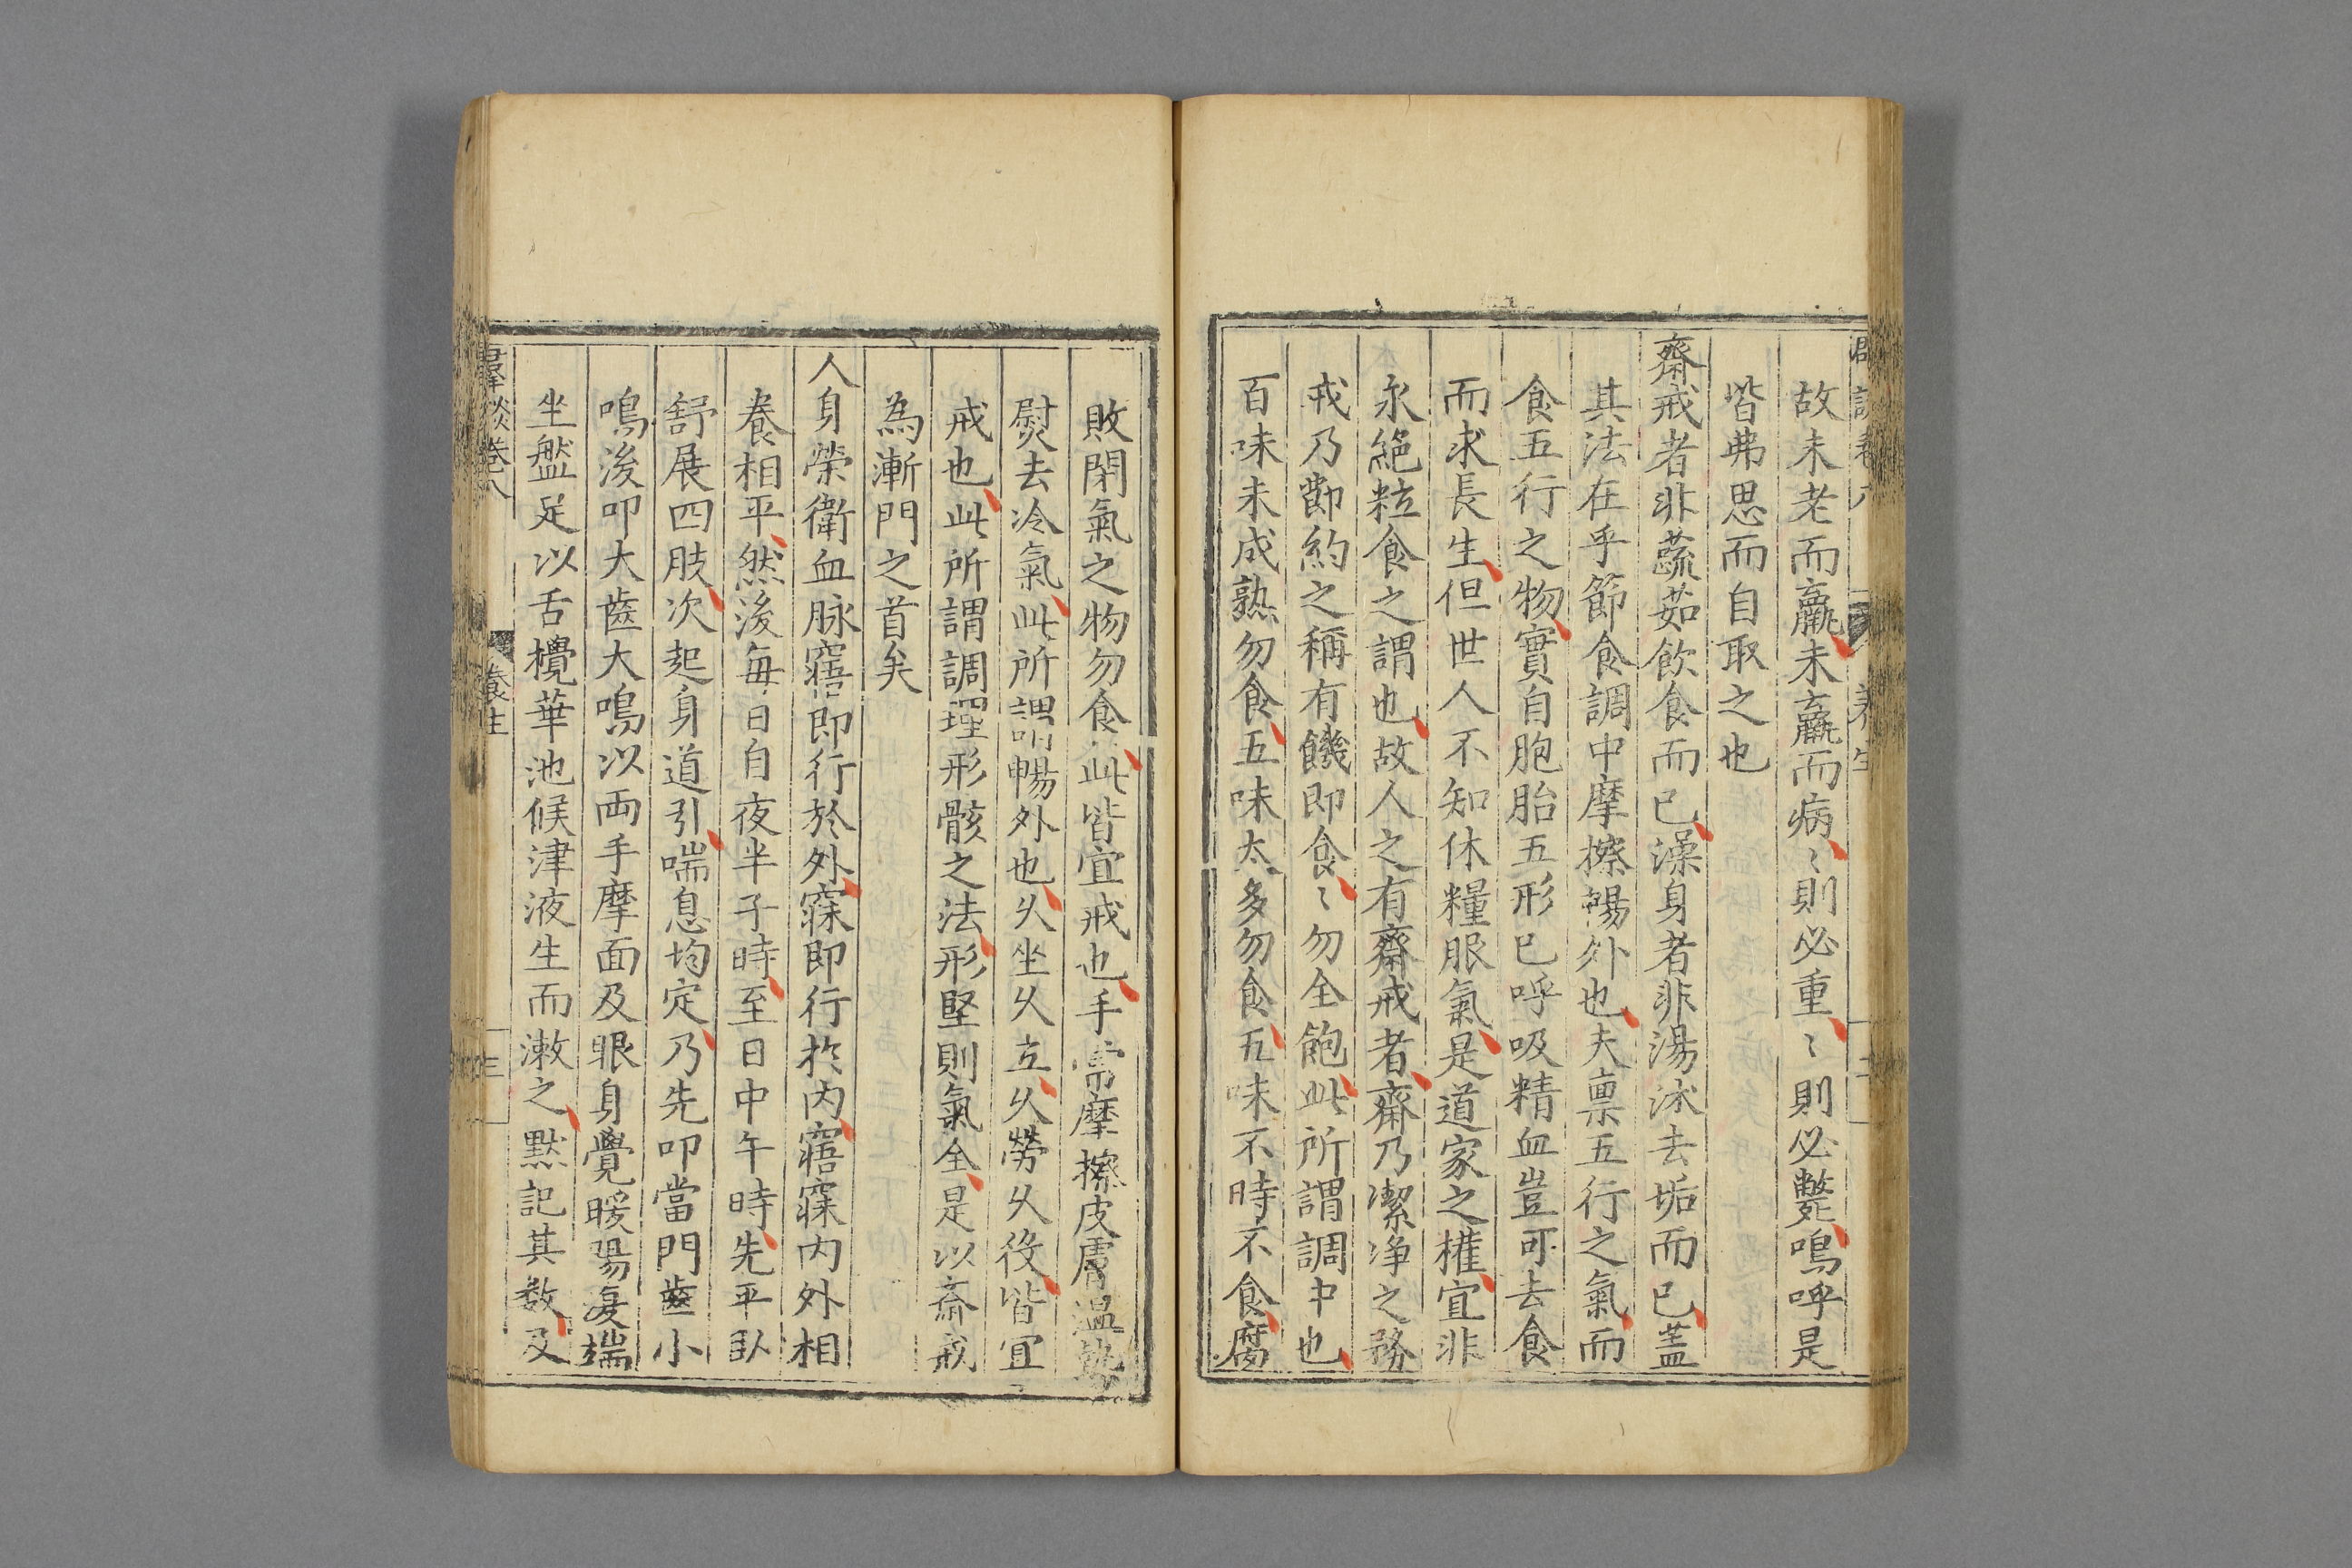 故未老而羸未羸而病〻則必重〻則必斃嗚呼是
皆弗思而自取之也
齋戒者非蔬茹飲食而已澡身者非湯沐去垢而已蓋
其法在乎節食調中摩擦暢外也夫稟五行之氣而
食五行之物實自胞胎五形已呼吸精血豈可去食
而求長生但世人不知休糧服氣是道家之權宜非
永絕粒食之謂也故人之有齋戒者齋乃潔净之務
戒乃節約之稱有饑即食〻勿全飽此所謂調中也
百味未成熟勿食五味太多勿食五味不時不食腐
敗閉氣之物勿食此皆宜戒也手常摩擦皮膚温熱
熨去冷氣此所謂暢外也久坐久立久勞久役皆宜
戒也此所謂調理形骸之法形堅則氣全是以齋戒
為漸門之首矣
人身榮衛血脉寤即行於外寐即行於内寤寐内外相
養相平然後每日自夜半子時至日中午時先平臥
舒展四肢次起身道引喘息均定乃先叩當門齒小
鳴後叩大齒大鳴以両手摩面及眼身覺暖暢復端
坐盤足以舌攪華池候津液生而漱之默記其数及
羣談卷八
養生